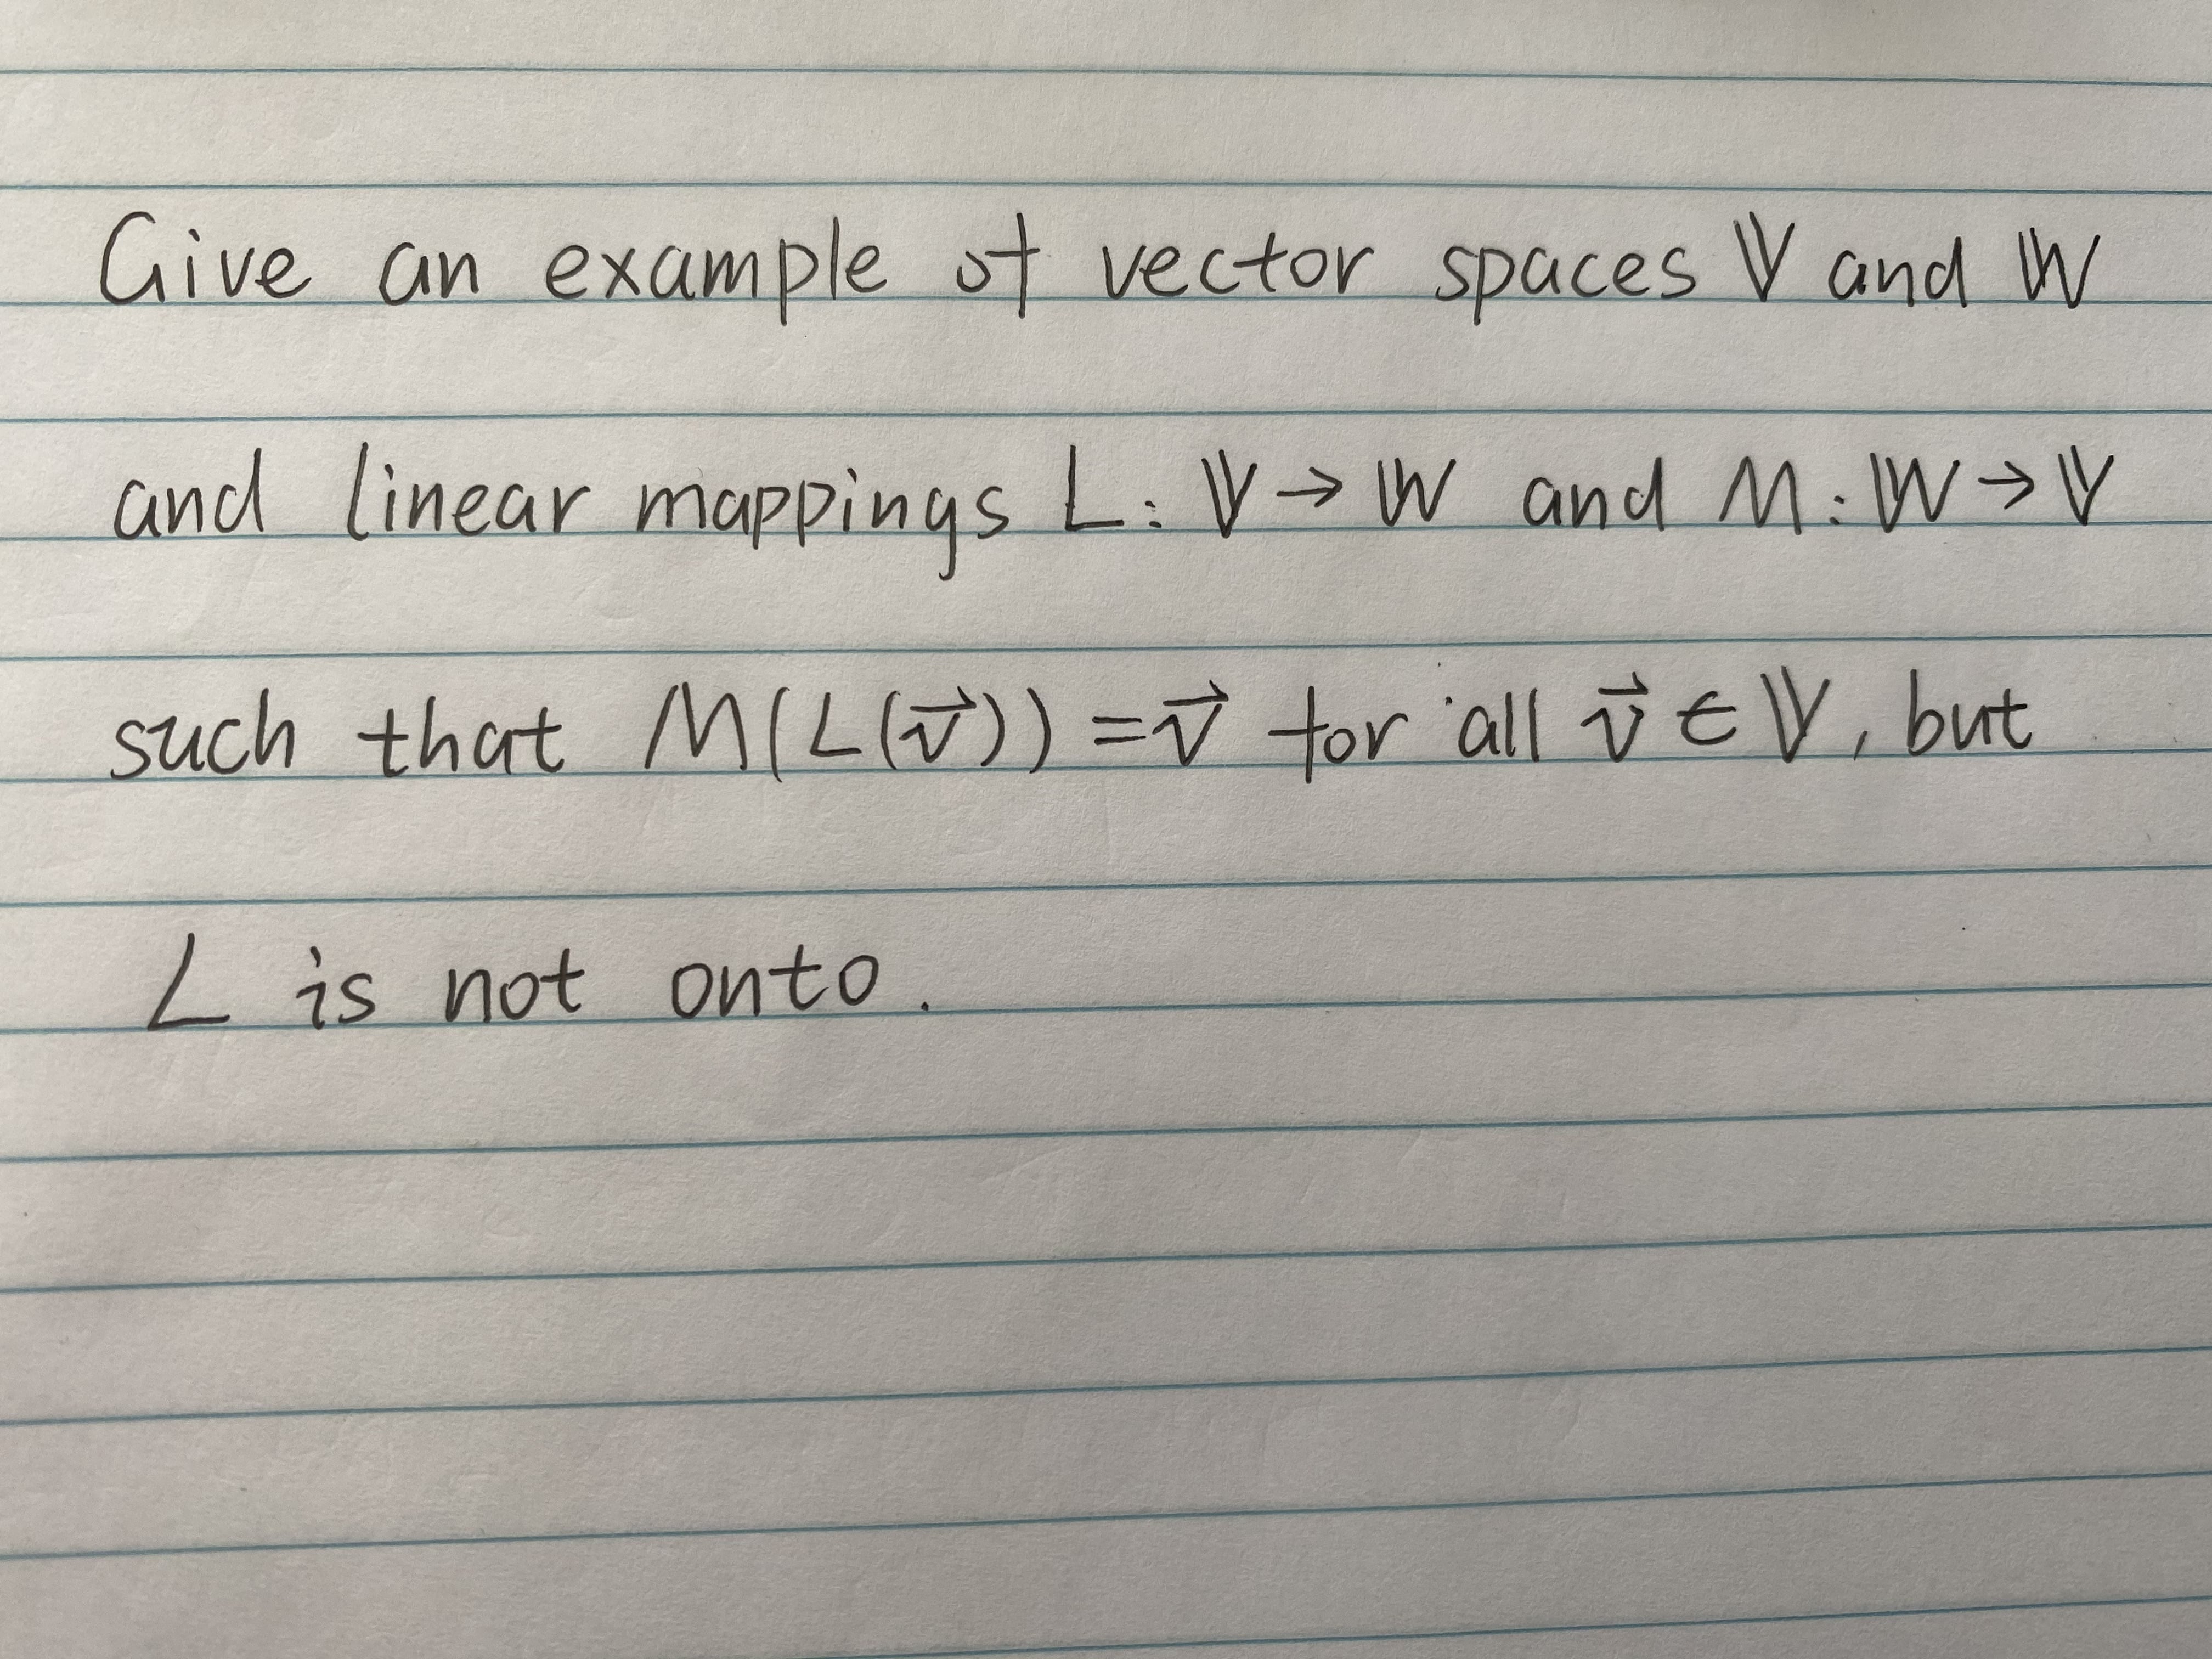 Give an example of vector spaces 𝕍 and 𝕎
and linear mappings L: 𝕍 → 𝕎 and M: 𝕎 → 𝕍
such that M(L(v⃗)) = v⃗ for all v⃗ ∈ 𝕍, but
L is not onto.